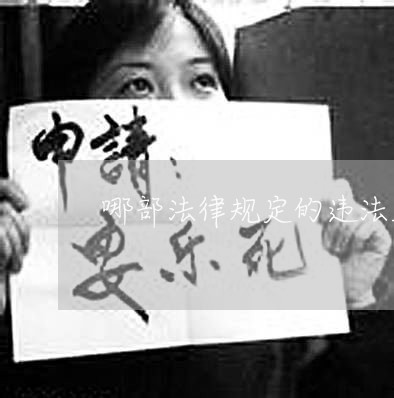 申請：
哪部法律规定的违法
要乐死